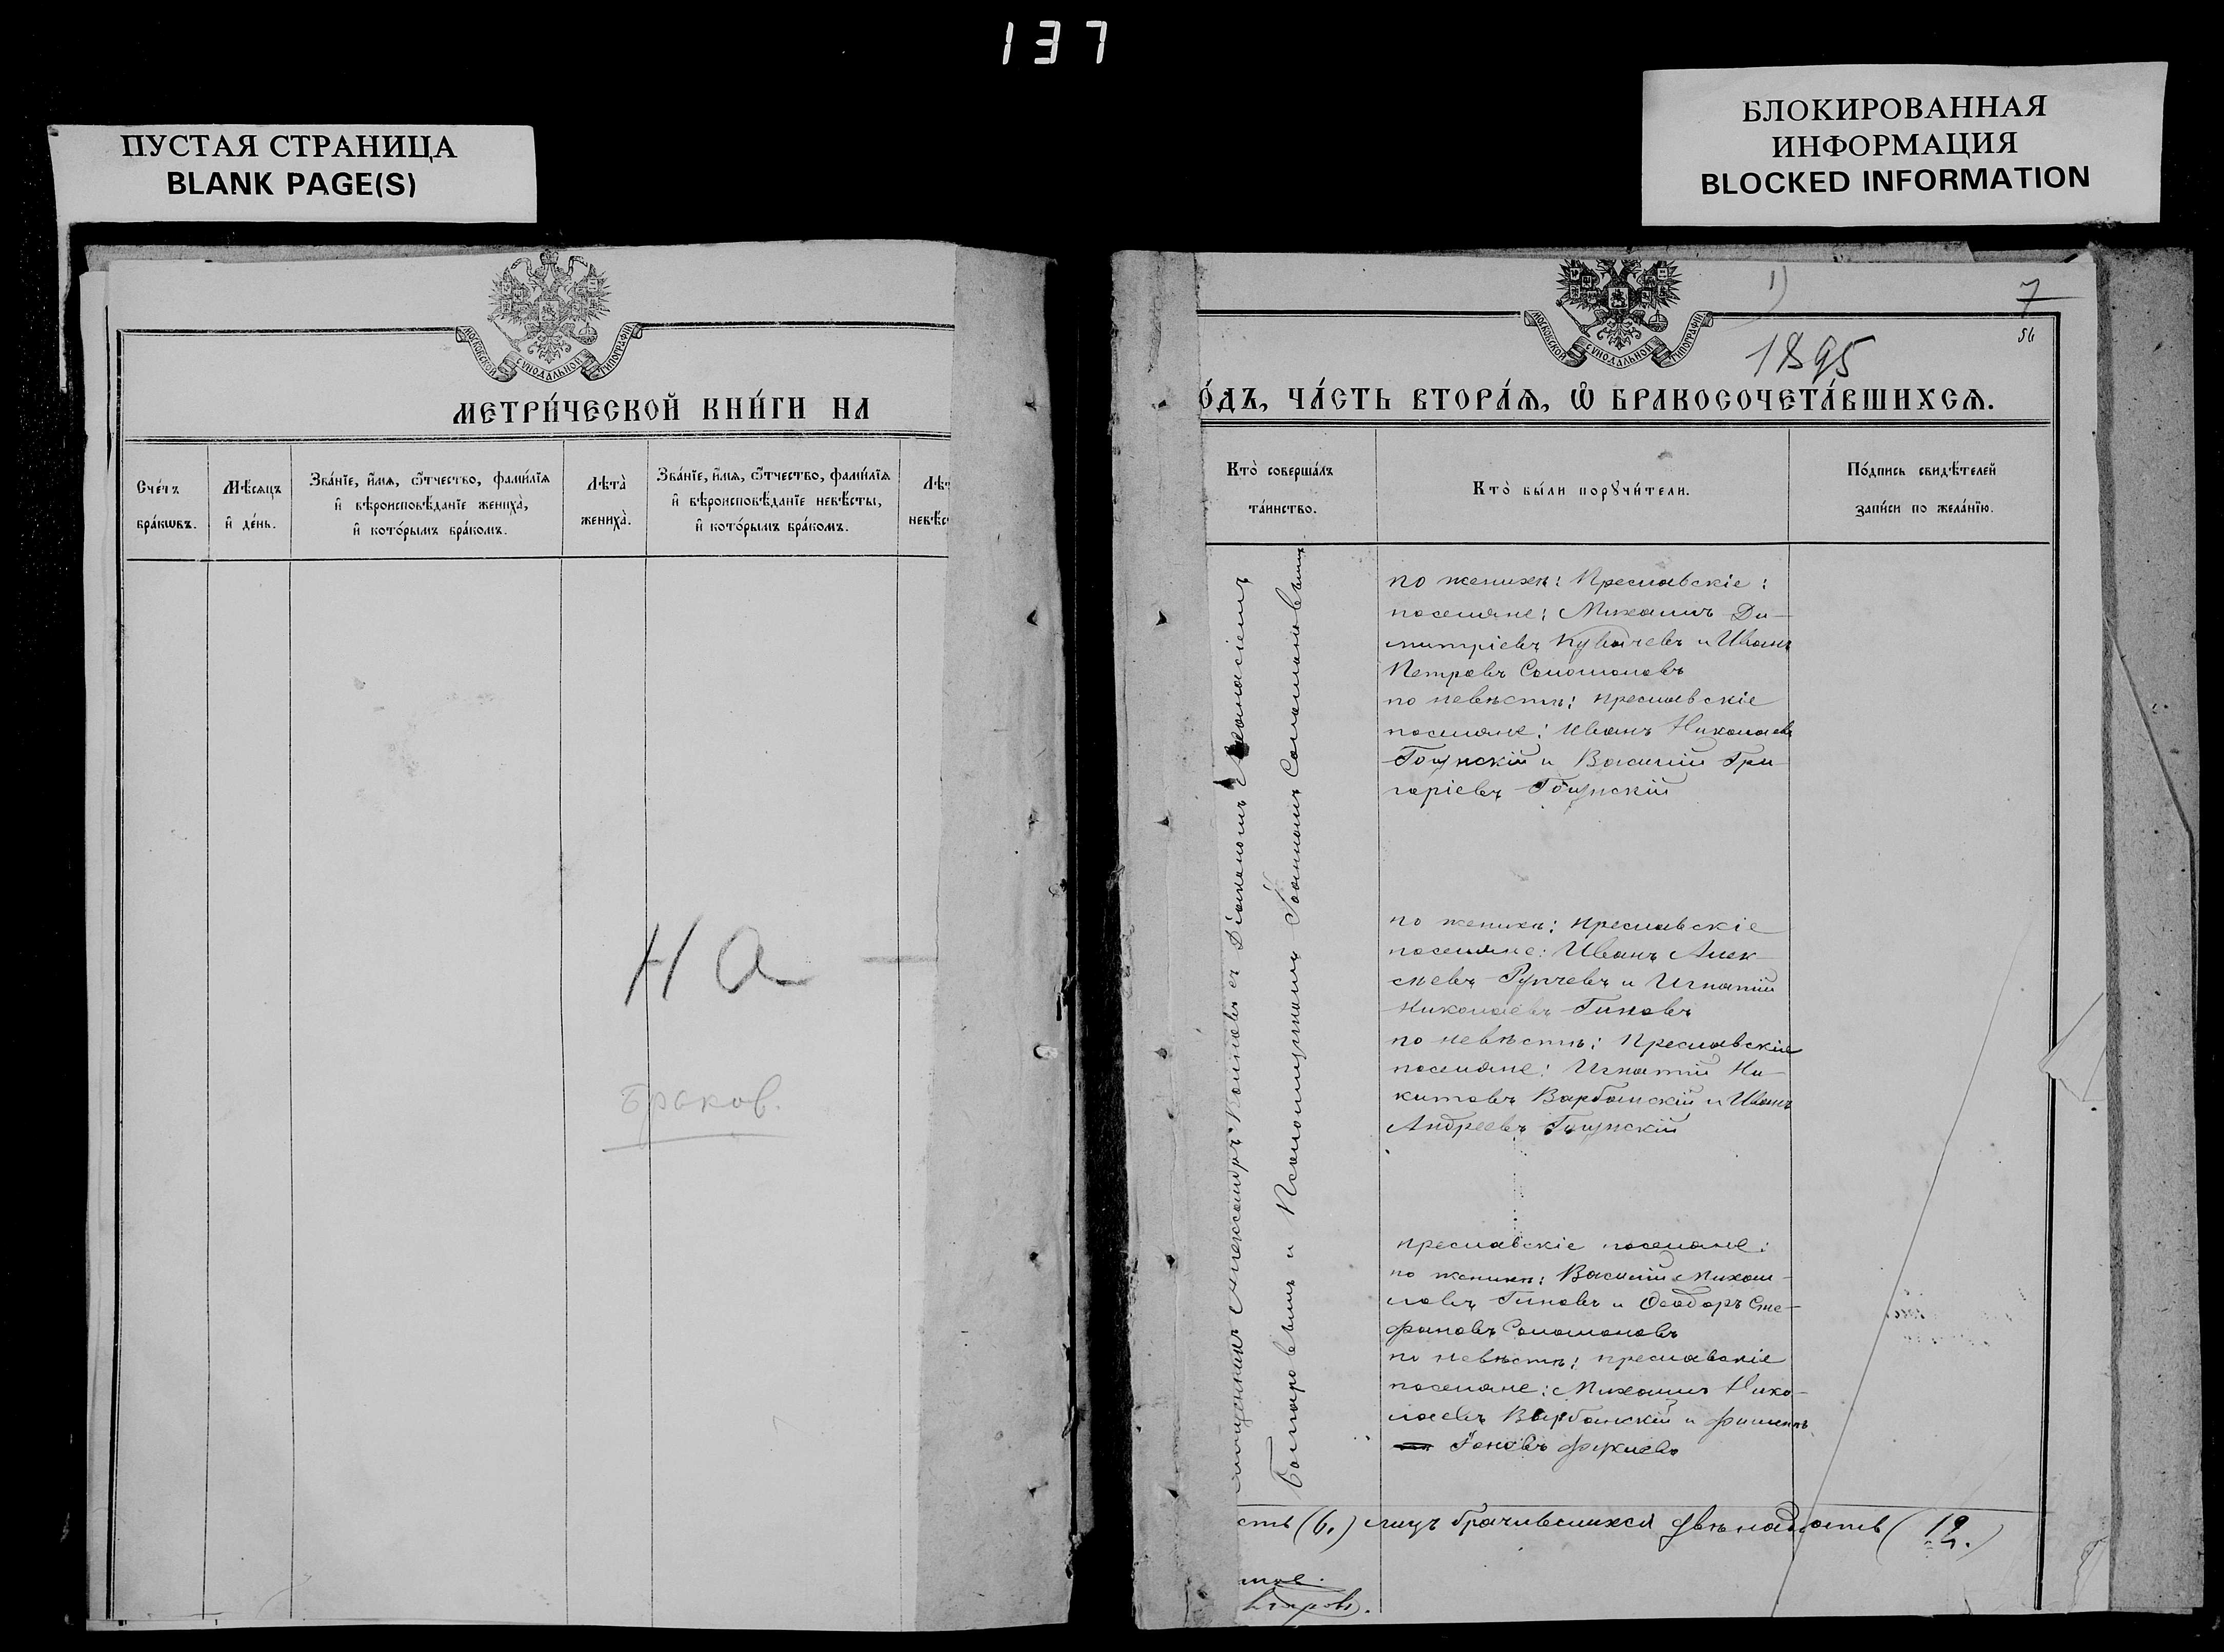 137
ПУСТАЯ СТРАНИЦА
BLANK PAGE(S)
БЛОКИРОВАННАЯ
ИНФОРМАЦИЯ
BLOCKED INFORMATION
МОСКОВСКОЙ СѴНОДАЛЬНОЙ ТИПОГРАФІИ
МЕТРИ́ЧЕСКОЙ КНИ́ГИ НА
Сче́тъ
бра́кѡвъ.
Мѣ́сяцъ
и҆ де́нь.
Зва́нїе, и҆́мѧ, ѻ҆́тчество, фами́лїѧ
и҆ вѣроисповѣ́данїе жениха̀,
и҆ кото́рымъ бра́комъ.
Лѣта̀
жениха̀.
Зва́нїе, и҆́мѧ, ѻ҆́тчество, фами́лїѧ
и҆ вѣроисповѣ́данїе невѣ́сты,
и҆ кото́рымъ бра́комъ.
На
браков.
1)
7
56
МОСКОВСКОЙ СѴНОДАЛЬНОЙ ТИПОГРАФІИ
1895
О́ДЪ, ЧА́СТЬ ВТОРА́Ѧ, Ѽ БРАКОСОЧЕТА́ВШИХСѦ.
Кто̀ соверша́лъ
та́инство.
Кто̀ бы́ли порꙋчи́тели.
По́дпись свидѣ́телей
за́писи по жела́нїю.
Александръ Коиновъ съ Діакономъ Аѳанасіемъ
Болгаровымъ и Псаломщикомъ Іоанномъ Соломоновымъ
по женихѣ: Преславскіе:
поселяне: Михаилъ Ди-
митріевъ Кувачевъ и Иванъ
Петровъ Соломоновъ
по невѣстѣ: преславскіе
поселяне: Иванъ Николаевъ
и Василій Гри
горіевъ
по женихѣ: преславскіе
поселяне: Иванъ Алек
сѣевъ Рупчевъ и Игнатій
Николаевъ Гиновъ
по невѣстѣ: Преславскіе
поселяне: Игнатій Ни-
китовъ Варбанскій и Иванъ
Андреевъ
преславскіе поселяне:
по женихѣ: Василій Михаи-
ловъ Гиновъ и Ѳеодоръ Сте-
фановъ Соломоновъ
по невѣстѣ: преславскіе
поселяне: Михаилъ Нико-
лаевъ Варбанскій и Филиппъ
сть (6.) лицъ брачившихся двѣнадцать (12.)